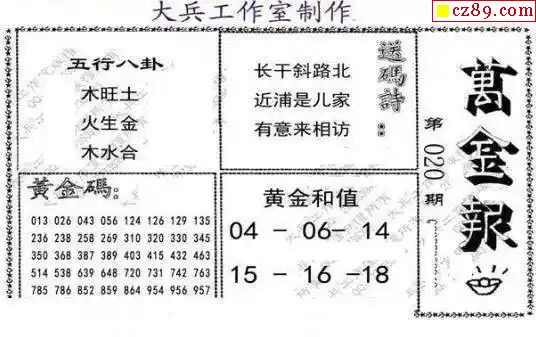 大兵工作室制作
cz89.com
五行八卦
木旺土
火生金
木水合
长干斜路北
近浦是儿家
有意来相访
送碼詩：
萬金報
第020期
黄金碼：
013 026 043 056 124 126 129 135
236 238 258 269 310 320 330 345
350 368 387 389 403 415 432 463
514 538 639 648 720 731 742 763
785 786 852 859 864 954 956 957
黄金和值
04 - 06- 14
15 - 16 -18